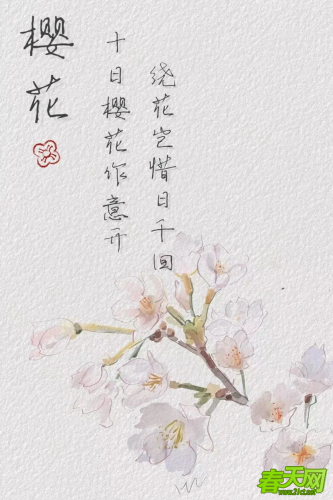 樱花
十日樱花作意开
绕花岂惜日千回
春天网
www.21cl.net